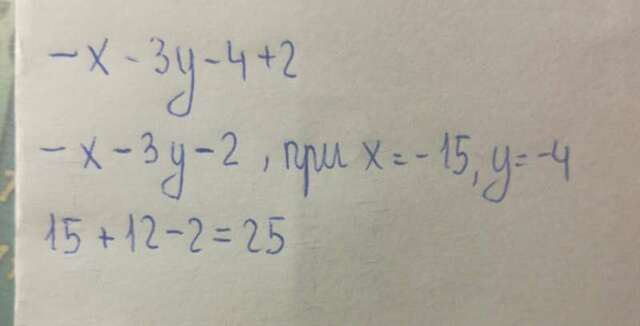 -x - 3y - 4 + 2
-x - 3y - 2, при x = -15, y = -4
15 + 12 - 2 = 25